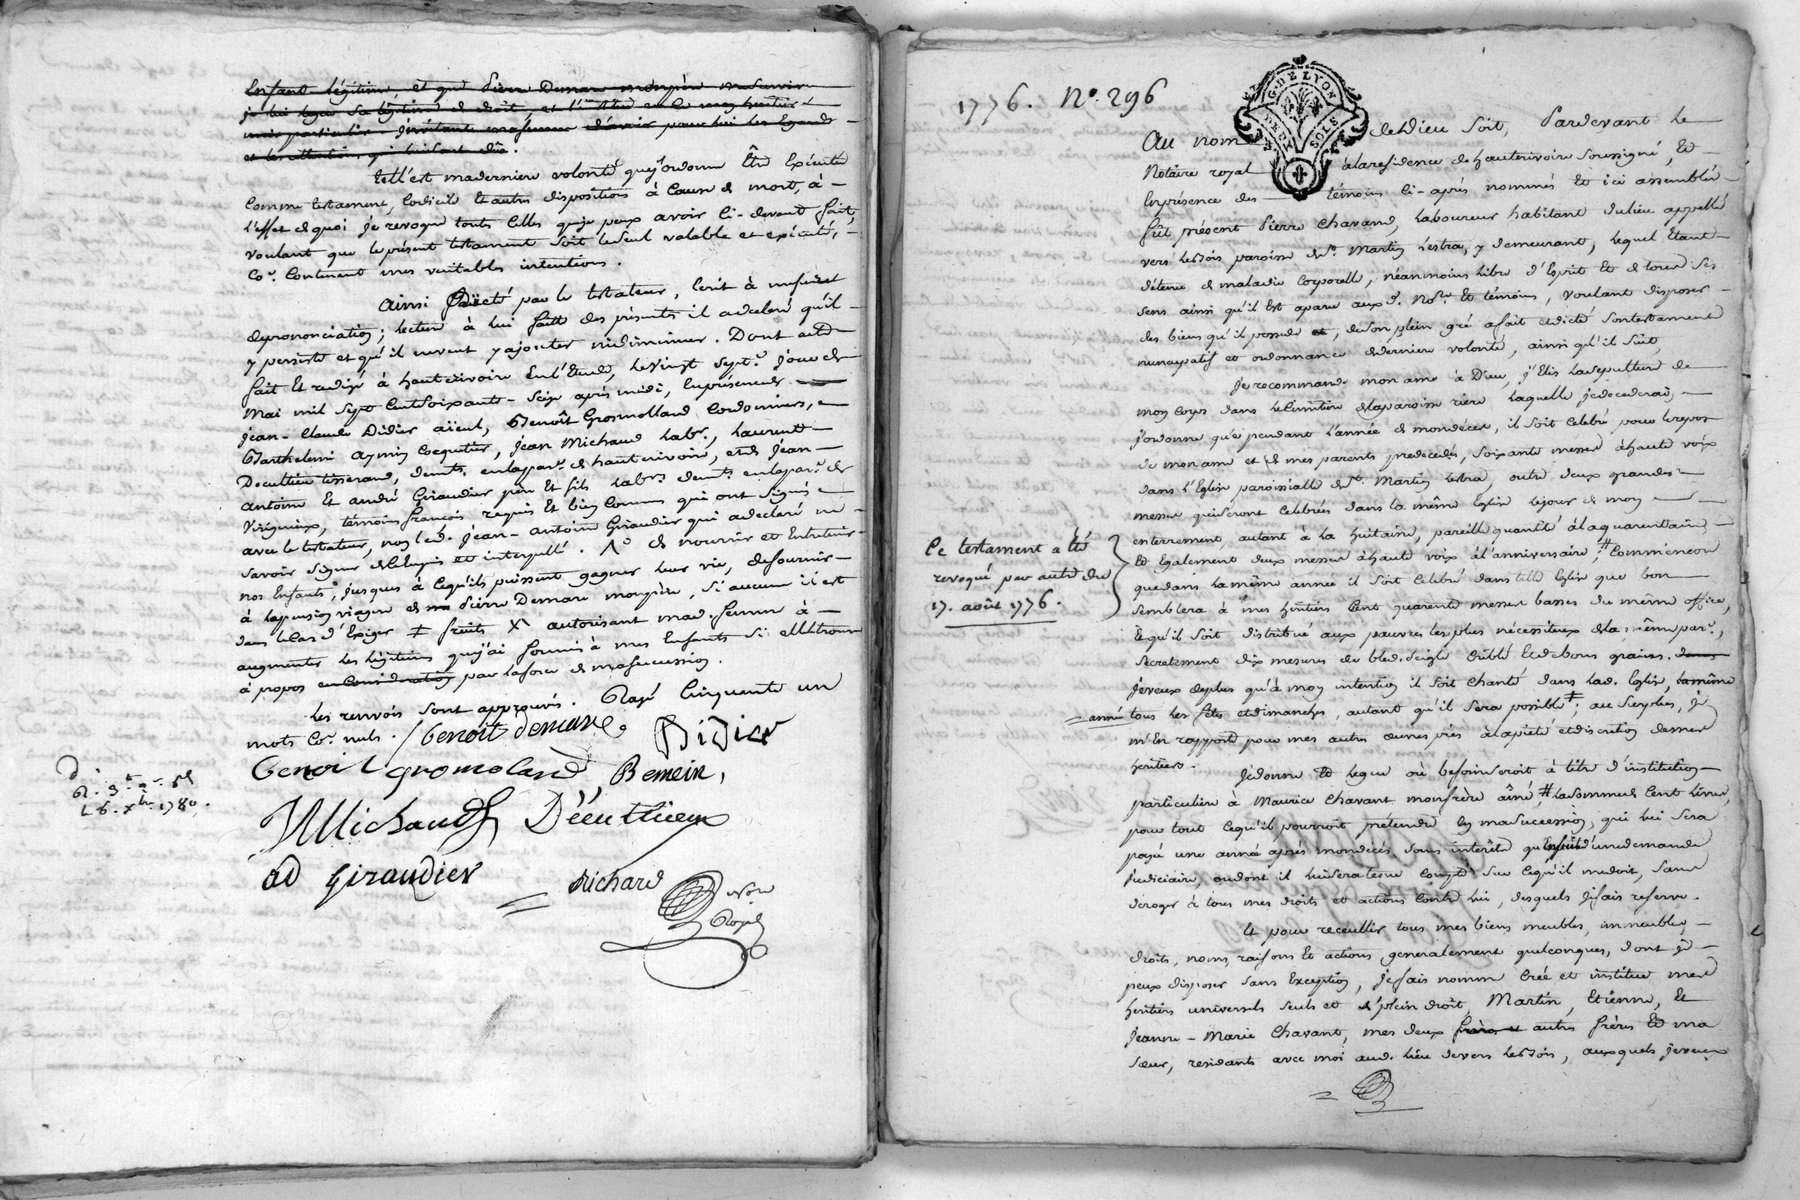 Enfant légitime, et que Pierre Demare mon père
je lui legue sa légitime de droit, et l'institue en ce mon héritier
et les attentions qu'
Telle est ma derniere volonté que j'ordonne être exécutée
comme testament, codicile et autres dispositions à cause de mort, à
l'effet de quoi je revoque toutes celles que je peux avoir ci-devant fait,
voulant que le présent testament soit le seul valable et exécuté,
co.e contenant mes veritables intentions.
Ainsi dicté par le testateur, écrit à mesure
de prononciation; lecture à lui faite des présentes il a declaré qu'il
y persiste et qu'il ne veut y ajouter ni diminuer. Dont acte
fait et redigé à hauterivoire en l'Etude, le vingt sept.e jour de
Mai mil sept cent soixante-seize après midi, en présence de
jean-Claude Didier aïeul, Benoît Grosmolland cordonniers,
Barthelemi aymin coquetier, jean Michaud lab.r, Laurent
Decultieu tisserand, demts. en la par.e de hauterivoire, et de jean
antoine et andré Giraudier père et fils lab.rs demts en la par.e de
Virigneux, témoins françois requis et bien connus qui ont signés
avec le testateur, non led. jean-antoine Giraudier qui a declaré ne
savoir signer de ce enquis et interpellé. de nourrir et entretenir
nos enfants, jusques à ce qu'ils puissent gagner leur vie, de fournir
à la pension viagere de Pierre Demare mon père, si aucune il est
dans le cas d'exiger ≠ fruits X autorisant mad. femme à
augmenter les légitimes que j'ai fournis à mes enfants si elle trouve
à propos en consideration par la force de ma succession.
Les renvois sont approuvés. Rayé cinquante un
mots co.e nuls. benoit demare. Didier
benoit gromoland Bemein,
JMichaud Décultieux
ad Giraudier Richard
Nore
Royal
L 6. xbre 1780.
1776. N.o 296
G. DE LYON
DEUX SOLS
Au nom de Dieu soit, Pardevant le
Notaire royal à la residence de hauterivoire soussigné, et
en présence des témoins ci-après nommés et ici assemblés
fût présent Pierre Chavand, laboureur habitant du lieu appellé
vers le bois paroisse de St. Martin Lestra, y demeurant, lequel étant
détenu de maladie corporelle, néanmoins libre d'esprit et de tous ses
sens ainsi qu'il est aparu auxd. No.re et témoins, voulant disposer
des biens qu'il possede et, de son plein gré a fait et dicté son testament
nuncupatif et ordonnance de derniere volonté, ainsi qu'il suit,
Je recommande mon ame à Dieu, j'élis la sepulture de
mon corps dans le cimitiere de la paroisse riere laquelle je décederai,
j'ordonne que pendant l'année de mon decès, il soit célebré pour le repos
de mon ame et de mes parents predecedés, soixante messes à haute voix
dans l'Eglise paroissialle de St. Martin Lestra, outre deux grandes
messes qui seront célebrées dans la même Eglise le jour de mon
enterrement, autant à la huitaine, pareille quantité à la quarantaine
et également deux messes à haute voix à l'anniversaire, # comme encore
que dans la même année il soit célebré dans telle Eglise que bon
semblera à mes héritiers cent quarente messes basses du même office,
et qu'il soit distribué aux pauvres les plus nécessiteux de la même par.e,
secretement dix mesures de bled-seigle criblé et de bons grains.
je veux de plus qu'à mon intention il soit chanté dans lad. Eglise, la même
= année tous les fêtes et dimanches, autant qu'il sera possible ≠; au surplus, je
m'en rapporte pour mes autres œuvres pies à la pieté et discretion de mes
héritiers.
Ce testament a été
revoqué par autre du
17. août 1776.
Je donne et legue où besoin seroit à titre d'institution
particuliere à Maurice Chavant mon frère aîné, # la somme de cent livres,
pour tout ce qu'il pourroit prétendre en ma succession, qui lui sera
payé une année après mon decès sans intérêts qu'ensuite d'une demande
judiciaire, au dont il lui sera tenu compte sur ce qu'il me doit, sans
deroger à tous mes droits et actions contre lui, desquels je fais reserve.
Et pour receuillir tous mes biens meubles, immeubles,
droits, noms, raisons et actions généralement quelconques, dont je
peux disposer sans exception, je fais nomme créé et institue mes
héritiers universels seuls et de plein droit, Martin, Etienne, et
jeanne-Marie Chavant, mes deux frères et autres frères et ma
sœur, residants avec moi aud. lieu de vers le bois, auxquels je veux